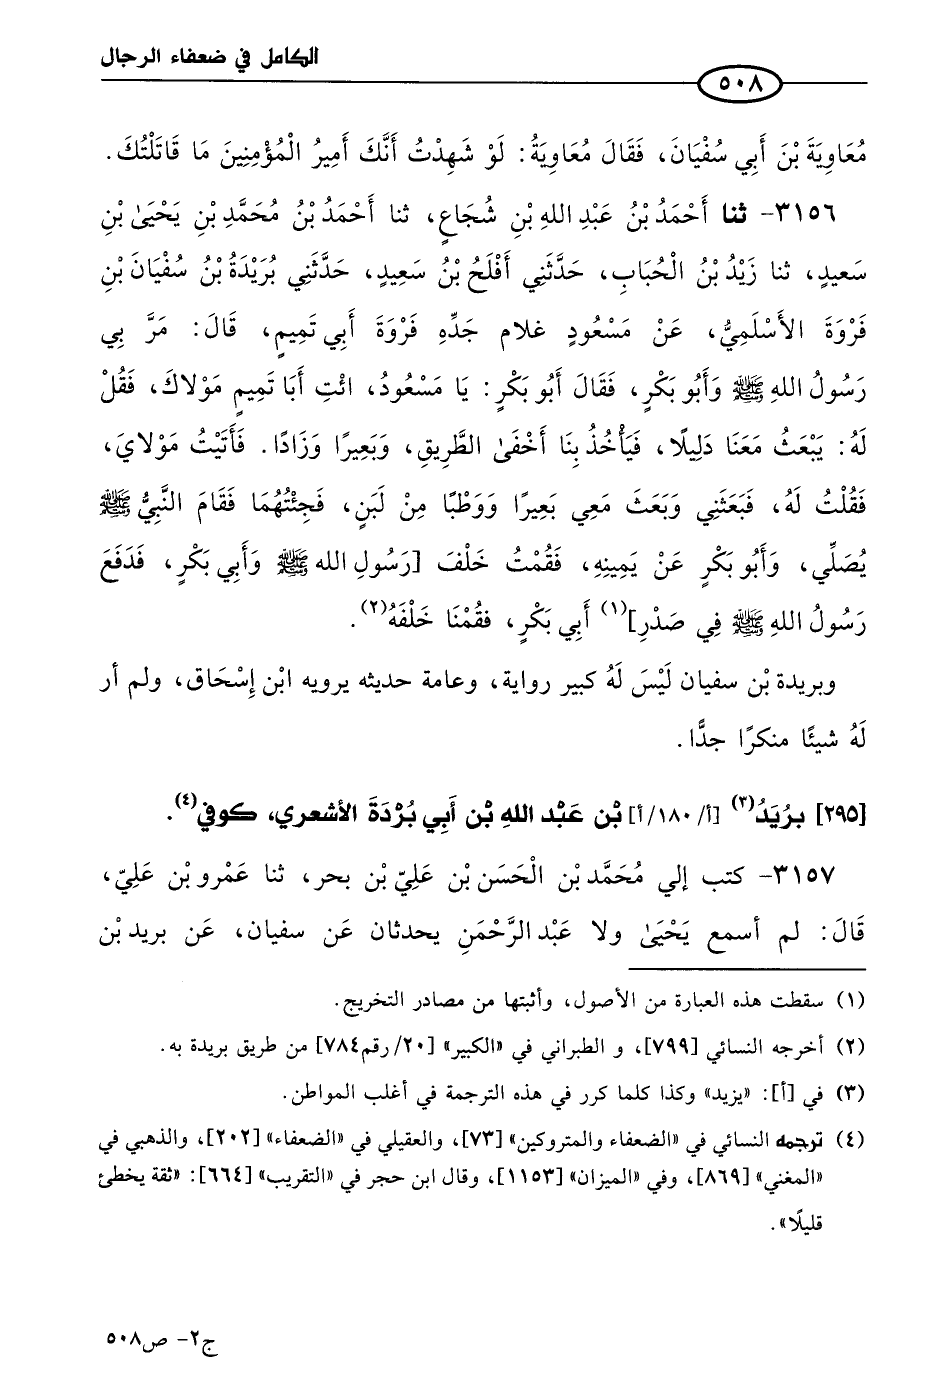 الكامل في ضعفاء الرجال
٥٠٨
مُعَاوِيَةَ بْنَ أَبِي سُفْيَانَ، فَقَالَ مُعَاوِيَةُ: لَوْ شَهِدْتُ أَنَّكَ أَمِيرُ الْمُؤْمِنِينَ مَا قَاتَلْتُكَ.
٣١٥٦- ثنا أَحْمَدُ بْنُ عَبْدِ اللهِ بْنِ شُجَاعٍ، ثنا أَحْمَدُ بْنُ مُحَمَّدِ بْنِ يَحْيَىٰ بْنِ
سَعِيدٍ، ثنا زَيْدُ بْنُ الْحُبَابِ، حَدَّثَنِي أَفْلَحُ بْنُ سَعِيدٍ، حَدَّثَنِي بُرَيْدَةُ بْنُ سُفْيَانَ بْنِ
فَرْوَةَ الأَسْلَمِيُّ، عَنْ مَسْعُودٍ غلام جَدِّهِ فَرْوَةَ أَبِي تَمِيمٍ، قَالَ: مَرَّ بِي
رَسُولُ اللهِ ﷺ وَأَبُو بَكْرٍ، فَقَالَ أَبُو بَكْرٍ: يَا مَسْعُودُ، ائْتِ أَبَا تَمِيمٍ مَوْلاكَ، فَقُلْ
لَهُ: يَبْعَثُ مَعَنَا دَلِيلًا، فَيَأْخُذُ بِنَا أَخْفَىٰ الطَّرِيقِ، وَبَعِيرًا وَزَادًا. فَأَتَيْتُ مَوْلايَ،
فَقُلْتُ لَهُ، فَبَعَثَنِي وَبَعَثَ مَعِي بَعِيرًا وَوَطْبًا مِنْ لَبَنٍ، فَجِئْتُهُمَا فَقَامَ النَّبِيُّ ﷺ
يُصَلِّي، وَأَبُو بَكْرٍ عَنْ يَمِينِهِ، فَقُمْتُ خَلْفَ [رَسُولِ الله ﷺ وَأَبِي بَكْرٍ، فَدَفَعَ
رَسُولُ اللهِ ﷺ فِي صَدْرِ](١) أَبِي بَكْرٍ، فقُمْنَا خَلْفَهُ(٢).
وبريدة بْن سفيان لَيْسَ لَهُ كبير رواية، وعامة حديثه يرويه ابْن إِسْحَاق، ولم أر
لَهُ شيئًا منكرًا جدًّا.
[٢٩٥] برُيَدُ(٣) [أ/١٨٠/أ] بْن عَبْد اللهِ بْن أَبِي بُرْدَةَ الأشعري، كوفي(٤).
٣١٥٧- كتب إلي مُحَمَّد بْن الْحَسَن بْن عَلِيّ بْن بحر، ثنا عَمْرو بْن عَلِيّ،
قَالَ: لم أسمع يَحْيَىٰ ولا عَبْد الرَّحْمَنِ يحدثان عَن سفيان، عَن بريد بْن
(١) سقطت هذه العبارة من الأصول، وأثبتها من مصادر التخريج.
(٢) أخرجه النسائي [٧٩٩]، و الطبراني في «الكبير» [٢٠/رقم٧٨٤] من طريق بريدة به.
(٣) في [أ]: «يزيد» وكذا كلما كرر في هذه الترجمة في أغلب المواطن.
(٤) ترجمه النسائي في «الضعفاء والمتروكين» [٧٣]، والعقيلي في «الضعفاء» [٢٠٢]، والذهبي في
«المغني» [٨٦٩]، وفي «الميزان» [١١٥٣]، وقال ابن حجر في «التقريب» [٦٦٤]: «ثقة يخطئ
قليلًا».
ج٢- ص٥٠٨